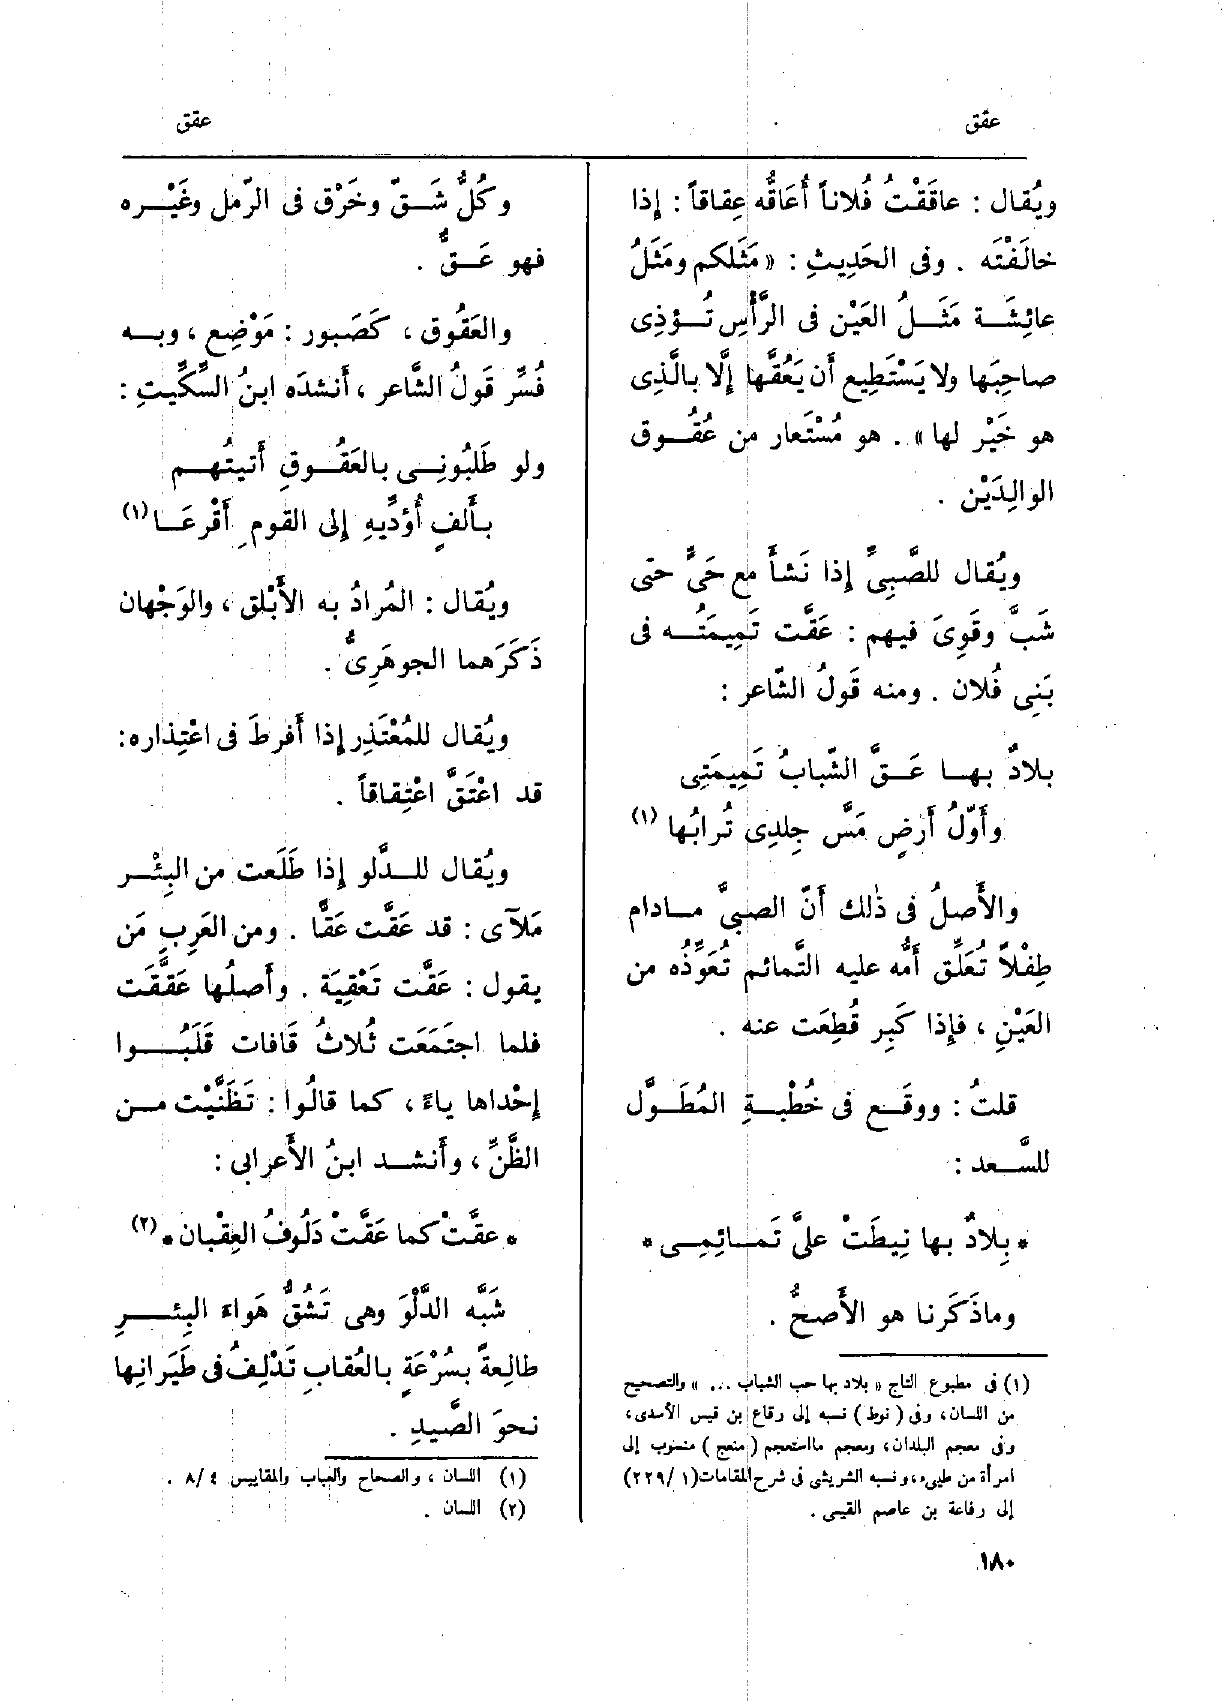 عقق
عقق
ويُقال : عاقَقْتُ فُلاناً أُعَاقُّه عِقاقاً : إِذا
خالَفْتَه . وفى الحَدِيثِ : « مَثَلكم ومَثَلُ
عائِشَة مَثَلُ العَيْن فى الرَّأْسِ تُؤذِى
صاحِبَها ولا يَسْتَطِيع أَن يَعُقَّها إِلَّا بالَّذِى
هو خَيْر لها » . هو مُسْتَعار من عُقُوق
الوالِدَيْن .
ويُقال للصَّبِىِّ إِذا نَشأَ مع حَىٍّ حتى
شَبَّ وقَوِىَ فيهم : عَقَّت تَمِيمَتُه فى
بَنِى فُلان . ومنه قَولُ الشّاعر :
بلادٌ بها عَقَّ الشّبابُ تَمِيمَتِى
وأَوّلُ أَرضٍ مَسَّ جِلدِى تُرابُها (١)
والأَصلُ فى ذٰلك أَنّ الصبىَّ مادام
طِفْلاً تُعَلِّق أُمُّه عليه التَّمائم تُعَوِّذُه من
العَيْنِ ، فإِذا كَبِر قُطِعَت عنه .
قلتُ : ووقَع فى خُطْبةِ المُطَوَّل
للسَّعد :
* بِلادٌ بها نِيطَتْ علىَّ تَمائِمِى *
وماذَكَرنا هو الأَصحُّ .
(١) فى مطبوع التاج « بلاد بها حب الشباب ... » والتصحيح
من اللسان، وفى ( نوط ) نسبه إلى رقاع بن قيس الأسدى،
وفى معجم البلدان، ومعجم مااستعجم ( منعج ) منسوب إلى
امرأة من طيىء، ونسبه الشريشى فى شرح المقامات (١/ ٢٢٩)
إلى رفاعة بن عاصم القيسى .
وكُلُّ شَقّ وخَرْق فى الرّمل وغَيْره
فهو عَقٌّ .
والعَقُوق ، كَصَبور : مَوْضِع ، وبه
فُسِّر قَولُ الشّاعر ، أَنشدَه ابنُ السِّكِّيتِ :
ولو طَلَبُونِى بالعَقُوقِ أَتيتُهم
بأَلفٍ أُؤدِّيهِ إِلى القومِ أَقْرعَا (١)
ويُقال : المُرادُ به الأَبْلق ، والوَجْهان
ذَكَرَهما الجوهَرِىُّ .
ويُقال للمُعْتَذِر إِذا أَفرطَ فى اعْتِذاره:
قد اعْتَقَّ اعْتِقاقاً .
ويُقال للدَّلو إِذا طَلَعت من البِئْر
مَلآى : قد عَقَّت عَقًّا . ومن العَرب مَن
يقول : عَقَّت تَعْقِيَة . وأَصلُها عَقَّقَت
فلما اجتَمَعَت ثُلاثُ قَافات قَلَبُوا
إِحْداها ياءً ، كما قالُوا : تَظَنَّيْت من
الظَّنِّ ، وأَنشد ابنُ الأَعرابى :
* عقَّتْ كما عَقَّتْ دَلُوفُ العِقْبان * (٢)
شَبَّه الدَّلْوَ وهى تَشُقُّ هَواءَ البِئرِ
طالِعةً بسُرْعَةٍ بالعُقابِ تَدْلِفُ فى طَيَرانِها
نحوَ الصَّيدِ .
(١) اللسان ، والصحاح والعباب والمقاييس ٤ /٨ .
(٢) اللسان .
١٨٠